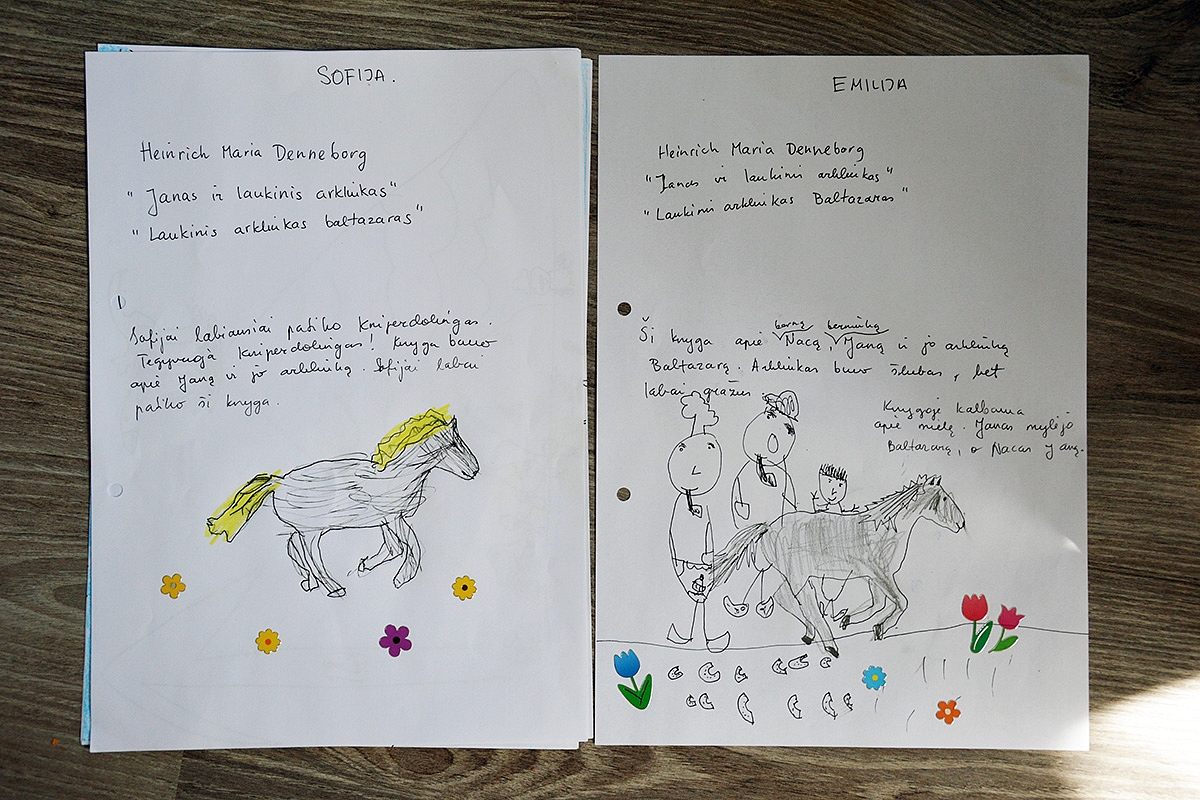 SOFIJA.
Heinrich Maria Denneborg
"Janas ir laukinis arkliukas"
"Laukinis arkliukas baltazaras"
Sofijai labiausiai patiko Kniperdolingas.
Tegyvuoja Kniperdolingas! Knyga buvo
apie Janą ir jo arkliuką. Sofijai labai
patiko ši knyga.
EMILIJA
Heinrich Maria Denneborg
"Janas ir laukinis arkliukas"
"Laukinis arkliukas Baltazaras"
berną berniuką
Ši knyga apie Nacą, Janą ir jo arkliuką
Baltazarą. Arkliukas buvo šlubas, bet
labai gražus
Knygoje kalbama
apie meilę. Janas mylėjo
Baltazarą, o Nacas Janą.